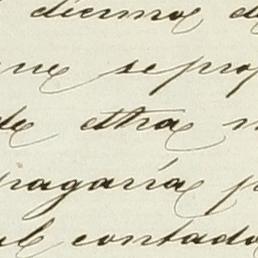 diezmos de
que se prop
de otra m
pagaría p
al contado